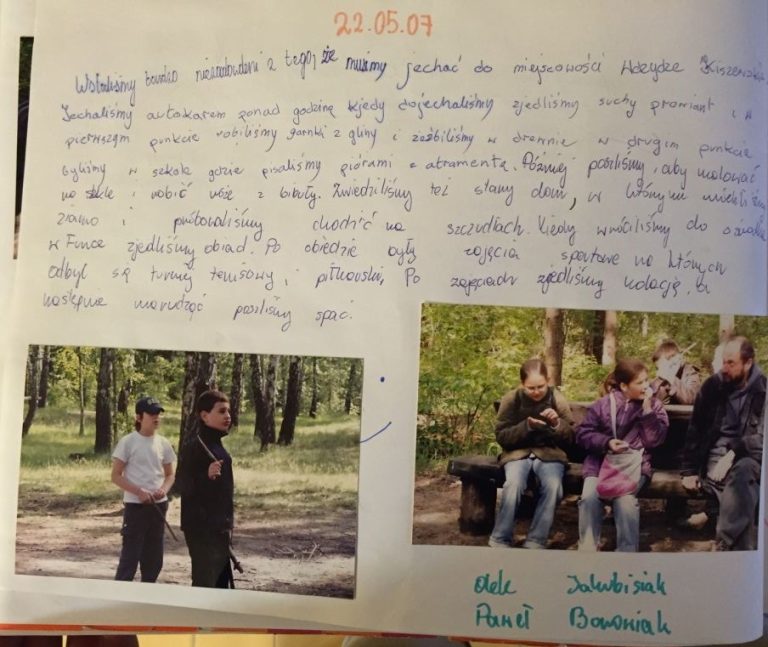 22.05.07
Wstaliśmy bardzo niezadowoleni z tego, że musimy jechać do miejscowości Wdzydze Kiszewskie.
Jechaliśmy autokarem ponad godzinę kjedy dojechaliśmy zjedliśmy suchy prowiant i w
pierwszym punkcie robiliśmy garnki z gliny i rzeźbiliśmy w drewnie w drugim punkcie
byliśmy w szkole gdzie pisaliśmy piórami z atramentu. Później poszliśmy, aby malować
na szkle i robić róże z bibuły. Zwiedziliśmy też stary dom, w którym
ziarno i próbowaliśmy chodzić na szczudłach. Kiedy wróciliśmy do ośrodka
w Funce zjedliśmy obiad. Po obiedzie były zajęcia sportowe na których
odbył są turniej tenisowy i piłkarski. Po zajęciach zjedliśmy kolację, a
następnie marudząć poszliśmy spać.
Olek Jakubisiak
Paweł